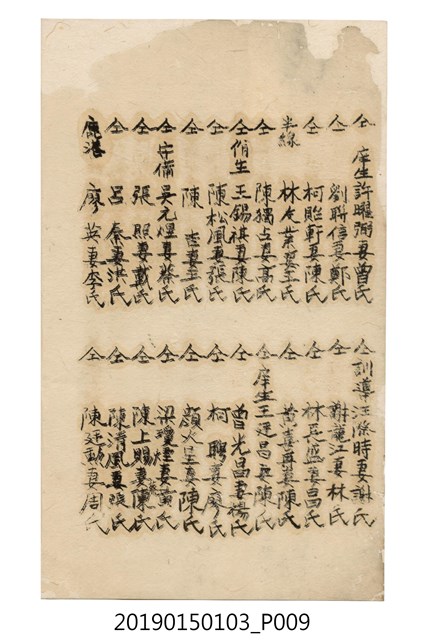 仝 庠生許曜弼妻曾氏
仝 劉聯信妻鄭氏
仝 柯貽軒妻陳氏
半線 林 業妻王氏
仝 陳獨占妻高氏
仝 佾生王錫祺妻陳氏
仝 陳松風妻張氏
仝 陳 妻王氏
仝 守備吳元煋妻蔡氏
仝 張照妻戴氏
仝 呂秦妻洪氏
鹿港 廖英妻李氏
仝 訓導汪 時妻謝氏
仝 謝龍江妻林氏
仝 林長盛妻呂氏
仝 黃 妻陳氏
仝 庠生王廷昌妻陳氏
仝 曾光昌妻楊氏
仝 柯聘妻廖氏
仝 顏火生妻陳氏
仝 梁 妻黃氏
仝 陳上賜妻陳氏
仝 陳清風妻張氏
仝 陳廷勳妻周氏
20190150103_P009